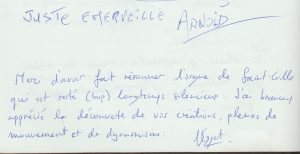 JUSTE EMERVEILLÉ ARNOLD
Merci d'avoir fait résonner l'orgue de Saint-Gilles
qui est resté (trop) longtemps silencieux. J'ai beaucoup
apprécié la découverte de vos créations, pleines de
mouvement et de dynamisme.